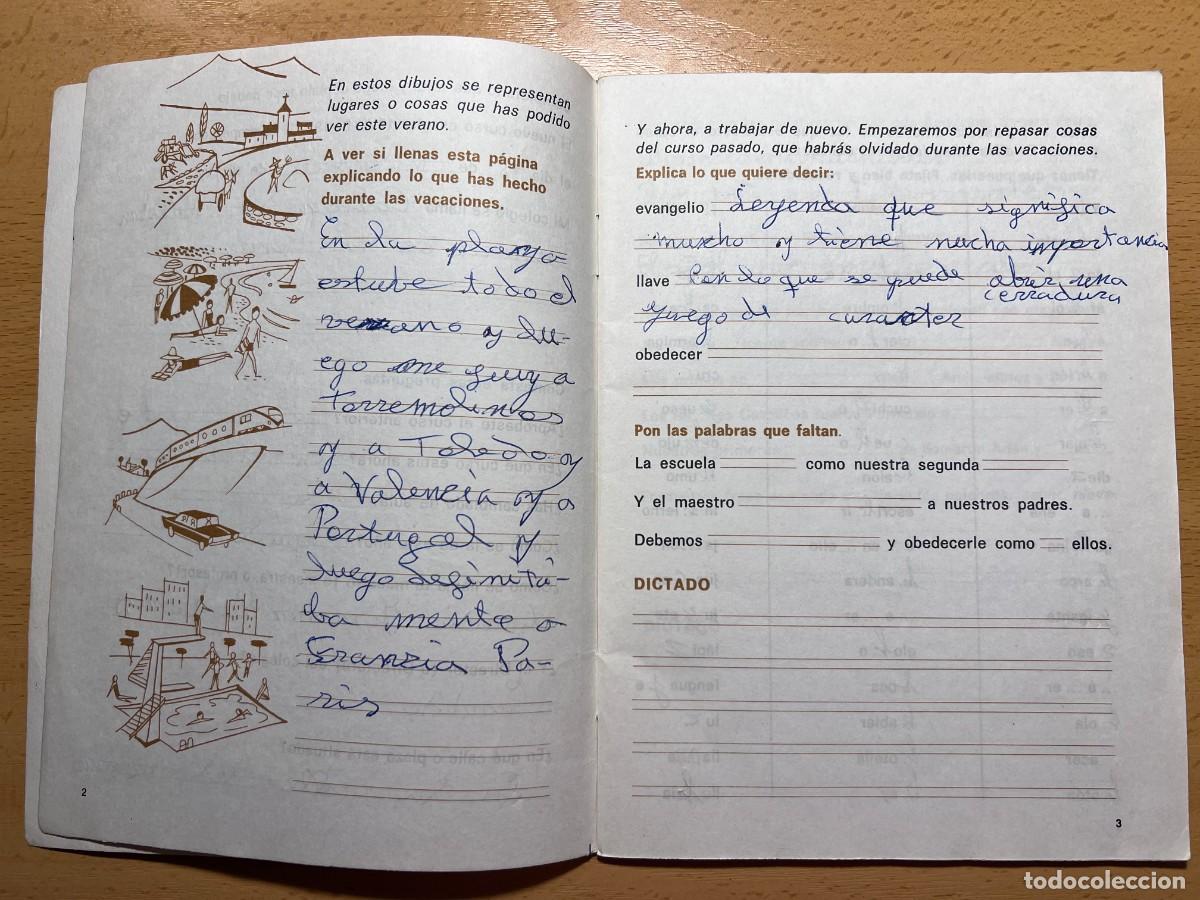 En estos dibujos se representan
lugares o cosas que has podido
ver este verano.
A ver si llenas esta página
explicando lo que has hecho
durante las vacaciones.
En la playa
estube todo el
verano y lu-
ego me fuy a
Torremolinos
y a Toledo y
a Valencia y a
Portugal y
luego definitá-
ba mente a
Francia Pa-
ris
2
Y ahora, a trabajar de nuevo. Empezaremos por repasar cosas
del curso pasado, que habrás olvidado durante las vacaciones.
Explica lo que quiere decir:
evangelio Leyenda que significa
mucho y tiene mucha importancia
llave Con lo que se puede abrir una
cerradura
Juego de
obedecer
Pon las palabras que faltan.
La escuela como nuestra segunda
Y el maestro a nuestros padres.
Debemos y obedecerle como ellos.
DICTADO
3
todocoleccion